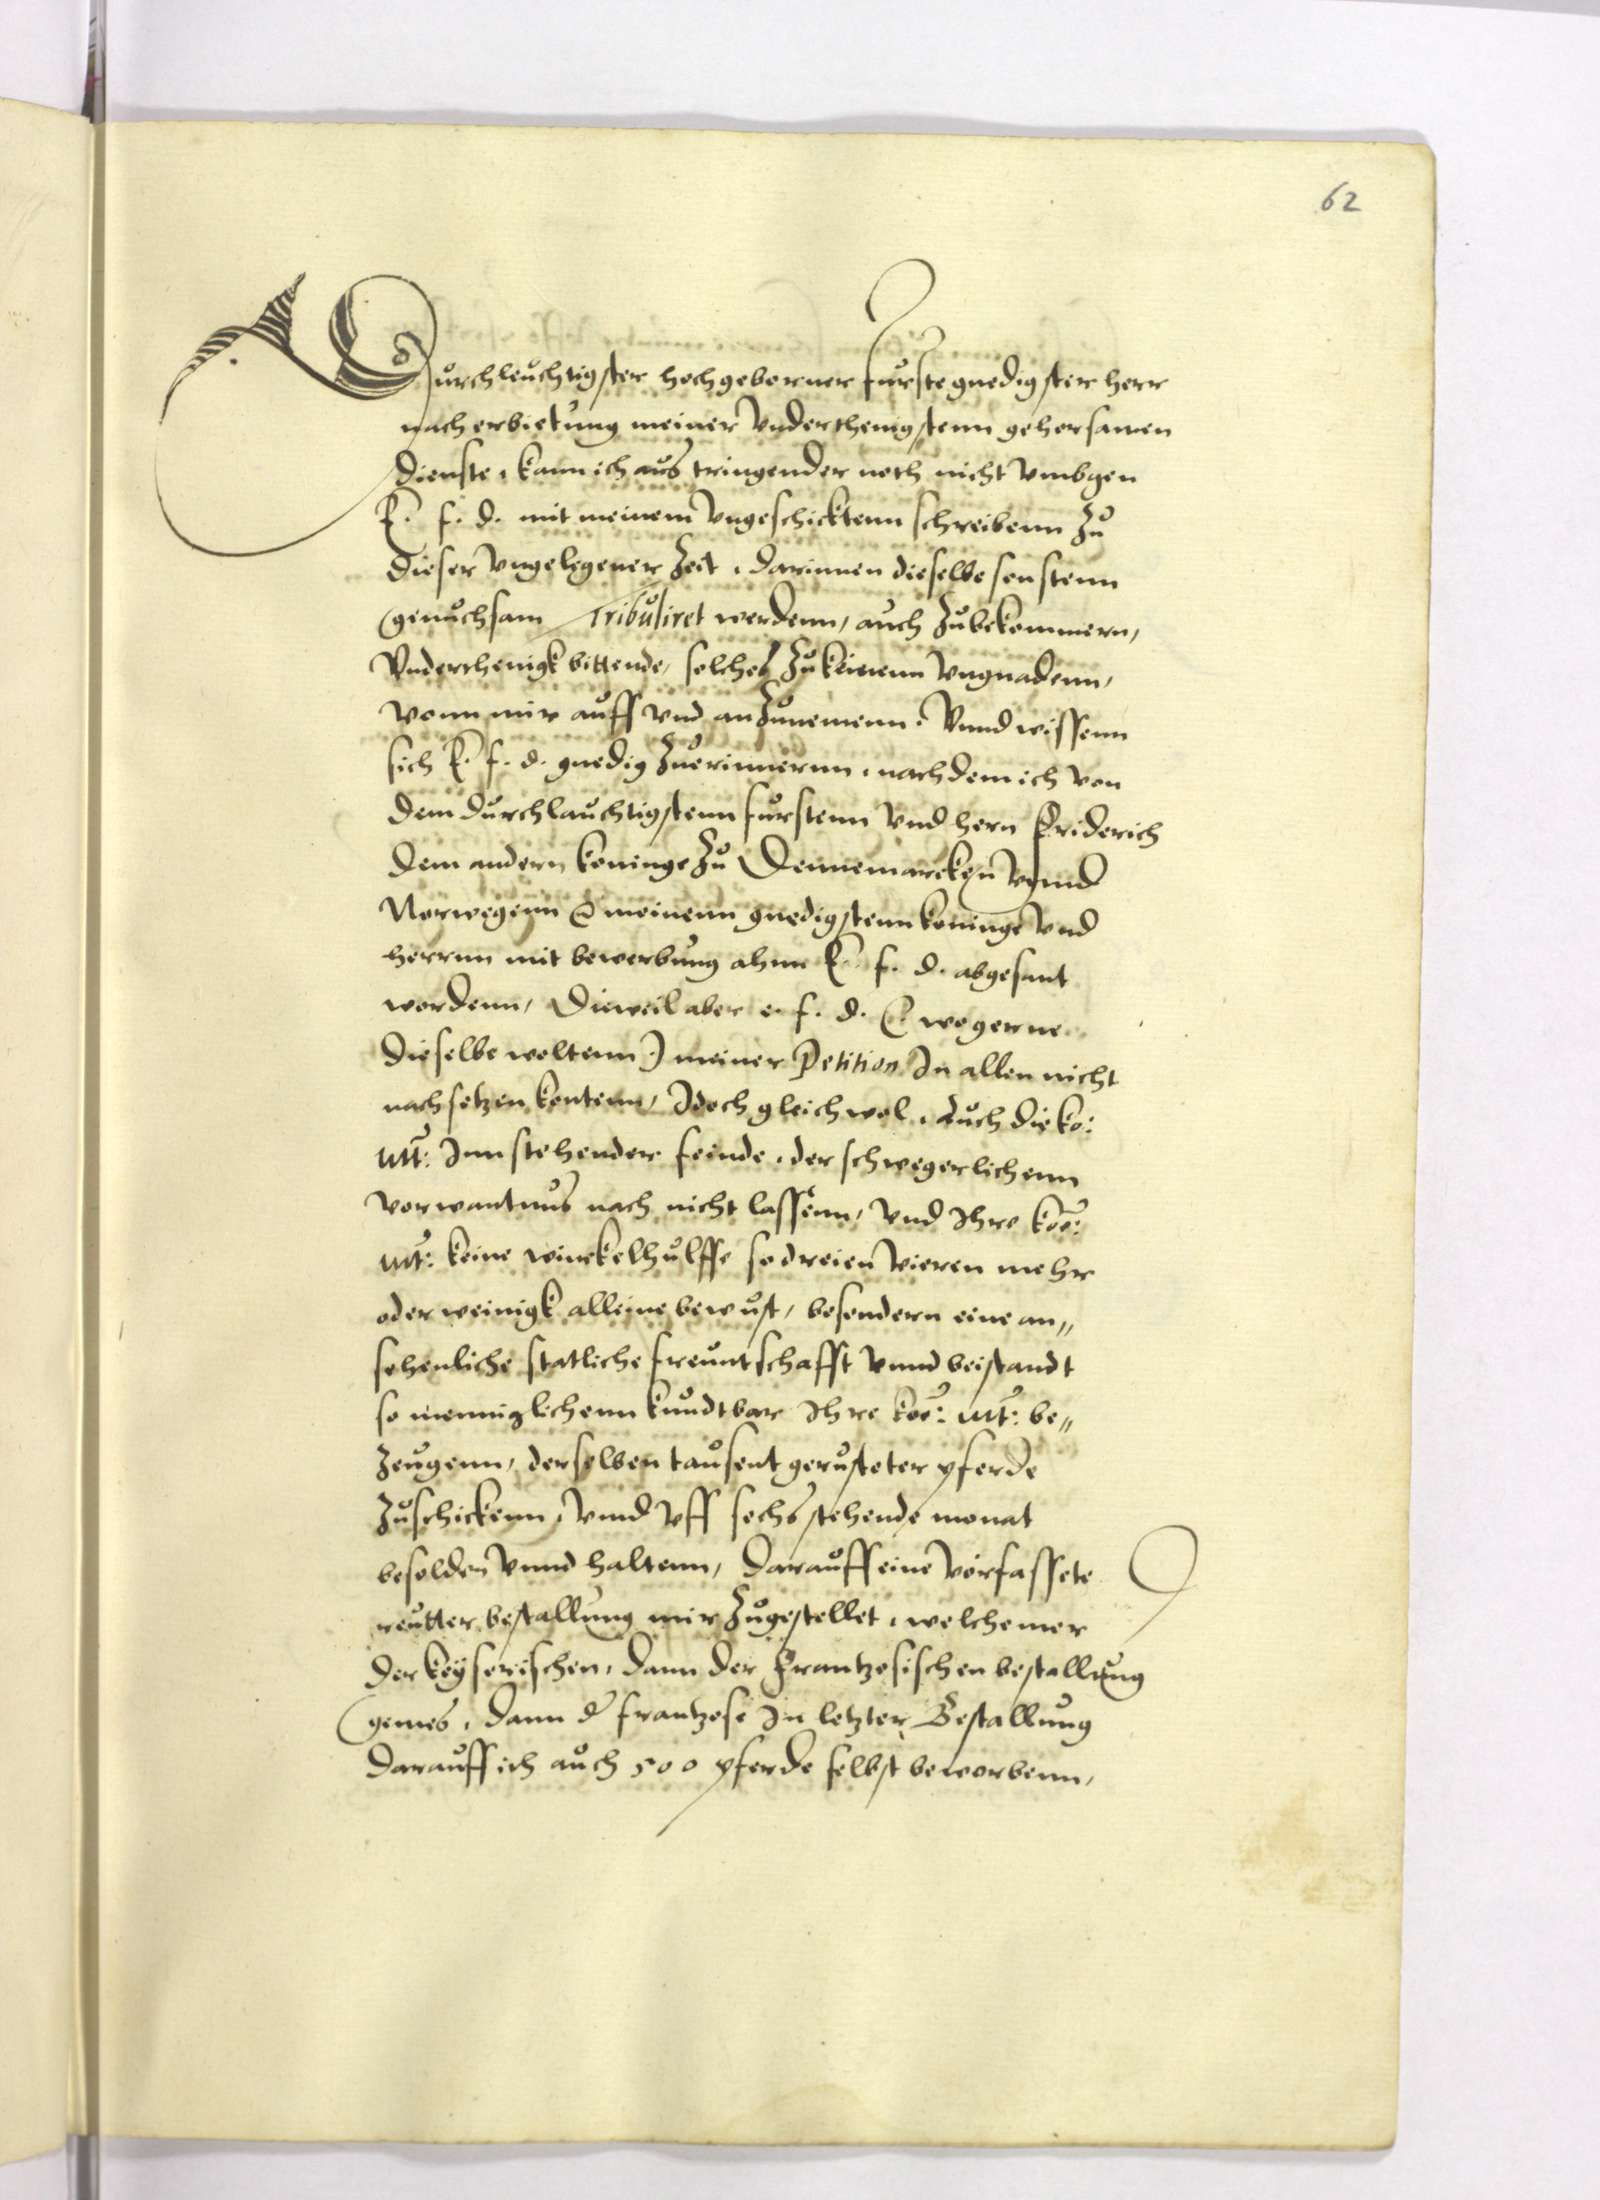 62
Durchleuchtigster hochgeborner furste gnedigster herr
nach erbietung meiner underthenigstenn gehorsamen
dienste, kann ich aus tringender noth nicht umbgen
E. f. d. mit meinem ungeschicktenn schreibenn zu
dieser ungelegener zeit, darinnen dieselbe sonstenn
genuchsam Tribuliret werdenn, auch zubekommern,
Underthenigk bittende, solches zu keinenn ungnadenn,
vonn mir auff und anzunemenn. Unnd wissenn
sich E. f. d. gnedig zuerinnernn, nachdem ich von
dem durchlauchtigstenn furstenn und hern Friderich
dem andern koninge zu Dennemarcken unnd
Norwegenn & meinenn gnedigstenn koninge und
herrnn mit bewerbung ahnn E. f. d. abgesant
wordenn, Dieweil aber e. f. d. (: wo gerne
dieselbe woltenn :) meiner Petition In allen nicht
nachsetzen kontenn, Idoch gleichwol, Auch die ko:
Mt: Inn stehender feinde, der schwegerlichenn
vorwantnus nach nicht lassenn, und Ihre koe:
Mt: keine winckelhulffe so dreien vieren mehr
oder weinigk alleine bewust, besondern eine an„
sehenliche statliche freuntschafft unnd beistandt
so menniglichenn kundtbar Ihre koe: Mt: be„
zeugenn, derselben tausent gerusteter pferde
zuschickenn, unnd uff sechs stehende monat
besolden unnd haltenn, darauff eine vorfassete
reutter bestallung mir zugestellet, welche mer
der keyserischen, dann der Frantzosischen bestallung
gemes, dann d frantzose In letzter Bestallung
darauff ich auch 500 pferde selbst beworbenn,